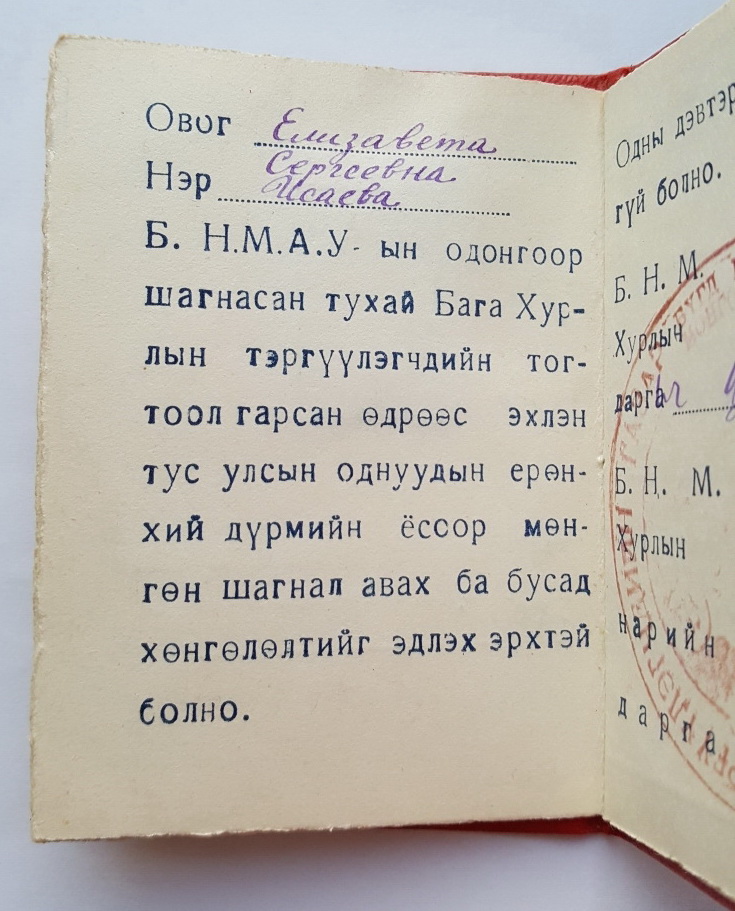 Овог Елизавета
Сергеевна
Нэр Исаева
Б. Н.М.А.У- ын одонгоор
шагнасан тухай Бага Хур-
лын тэргүүлэгчдийн тог-
тоол гарсан өдрөөс эхлэн
тус улсын однуудын ерөн-
хий дүрмийн ёссор мөн-
гөн шагнал авах ба бусад
хөнгөлөлтийг эдлэх эрхтэй
болно.
Одны дэвтэр
гүй болно.
Б. Н. М.
Хурлыч
дарга
Б. Н. М.
Хурлын
нарийн
дарга